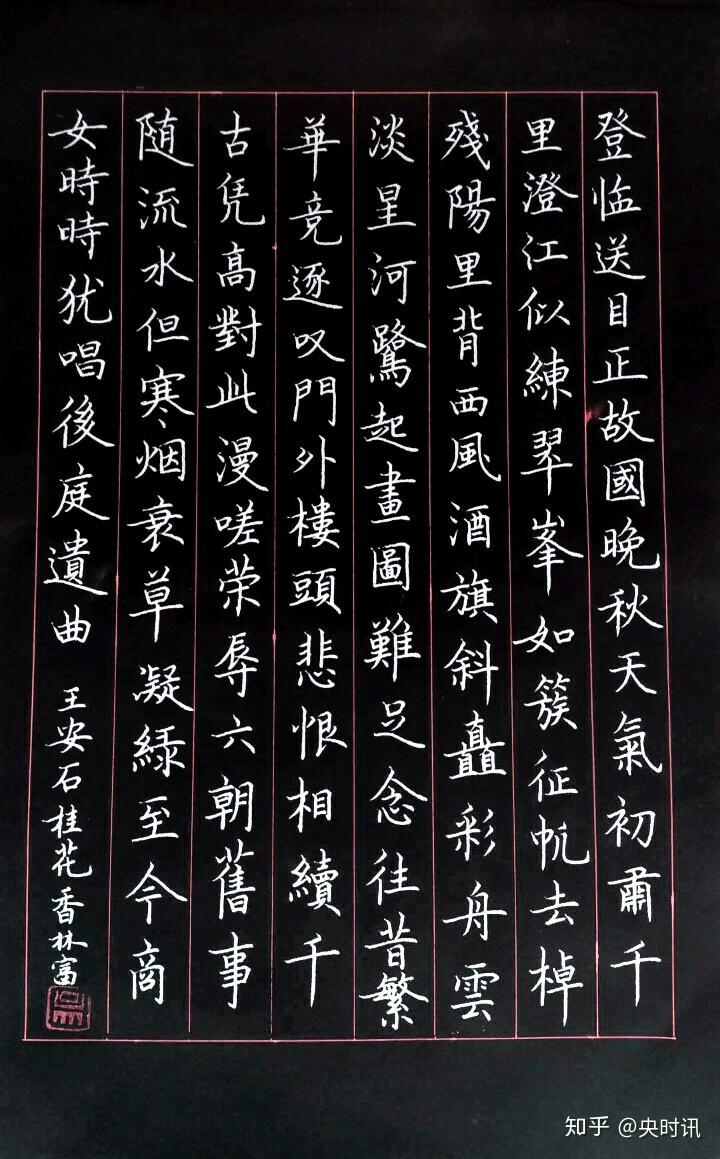 登临送目正故國晚秋天氣初肅千
里澄江似練翠峯如簇征帆去棹
殘陽里背西風酒旗斜矗彩舟雲
淡星河鷺起畫圖難足念往昔繁
華竞逐叹門外樓頭悲恨相續千
古凭高對此漫嗟荣辱六朝舊事
随流水但寒烟衰草凝緑至今商
女時時犹唱後庭遺曲 王安石桂花香林富
知乎 @央时讯